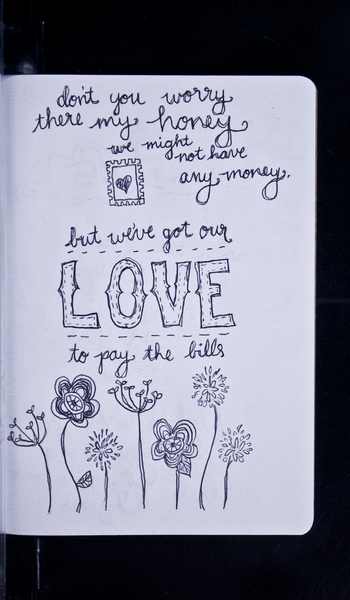 don't you worry
there my honey
we might
not have
any money.
but we've got our
LOVE
to pay the bills